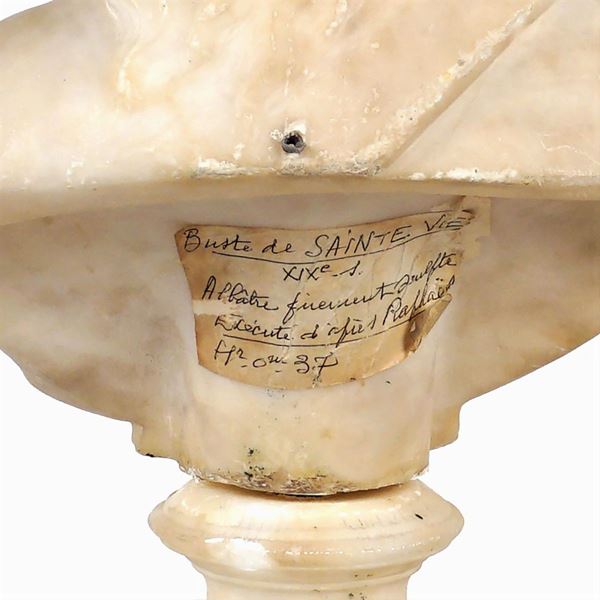 Buste de SAINTE VIE
XIXe s.
Albâtre finement sculpté
Exécuté d'après Raphaël
Hr 0m 37